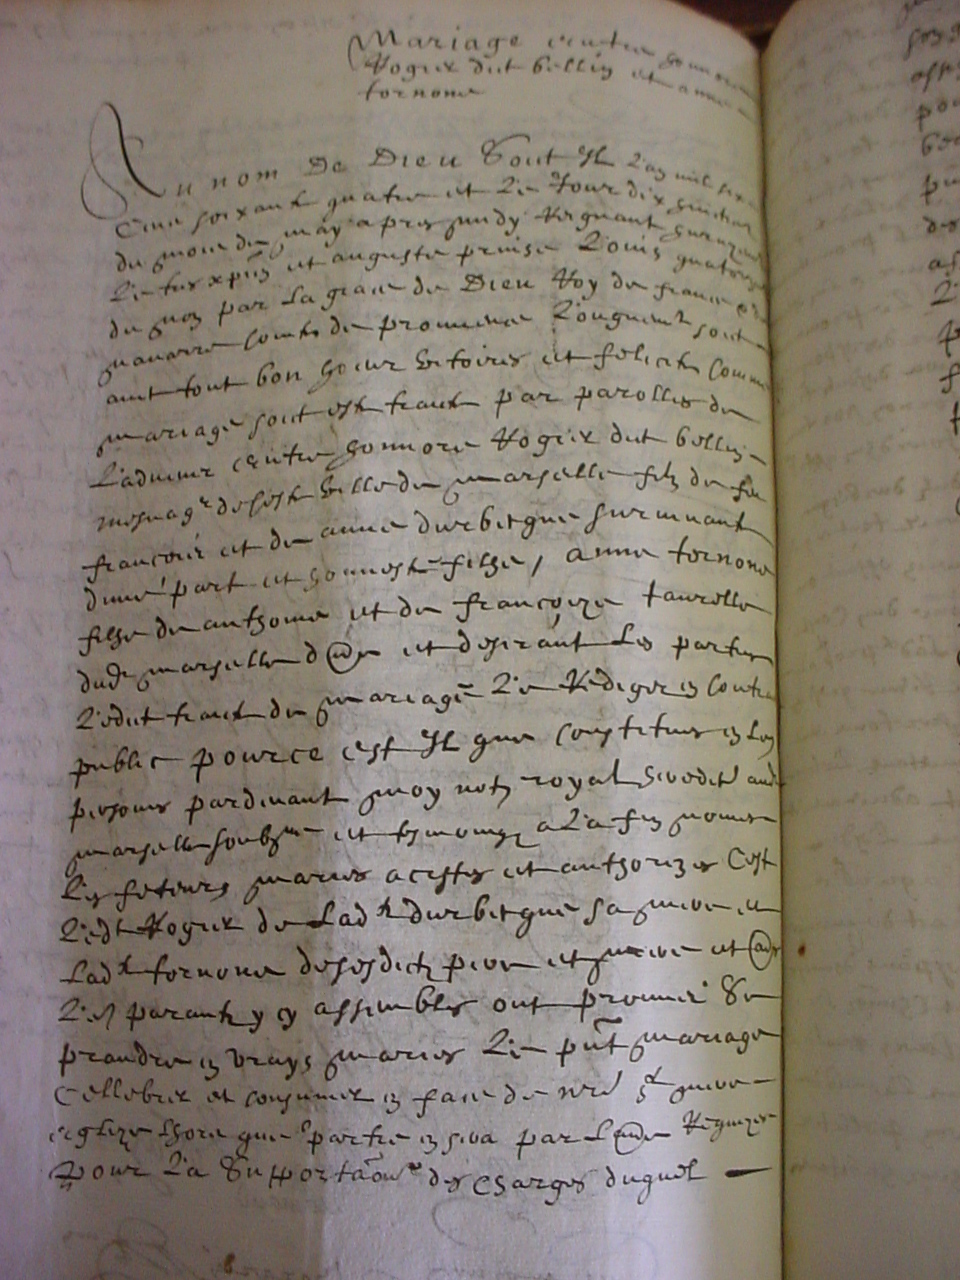 Mariage entre honnore
Rogier dit bellin et anne
fornone
Au nom De Dieu soit Il l'an mil six
Cens soixante quatre et Le Jour dix huitiesme
du mois de may apres midy Regnant
tres xpien et auguste prince Louis quatorze
du nom par La grace de Dieu Roy de france et de
navarre Comte de provence Longuement soit
aint tout bon heur vitoires et felicite Comme
mariage soit este traité par parolles de
Ladvenir entre honnore Rogier dit bellin
mesnagr de ceste ville de marseille filz de feu
francois et de anne durbegue survivante
dune part et honneste filhe, anne fornone
filhe de anthoine et de françoize taurelle
dudt marseille d'@e et desirant Les parties
Ledit traité de mariage Le Rediger en Contra
public pource est Il que Constitues en Leurs
persones pardevant moy notre royal hereditre audt
marseille soubzné et tesmoings a La fin nomes
Les futeurs maries acistes et authorizes Cest
Ledt Rogier de Ladte durbegue sa mere et
Ladte fornone de sesdictz pere et mere et @es
Leurs parantz y assembles ont promis se
prandre en vrays maries Le pnt mariage
Cellebrer et consumer en face de nre ste mere
esglize Lhors que l'partie en sera par L@e Requize
Pour La supportaõn des charges duquel